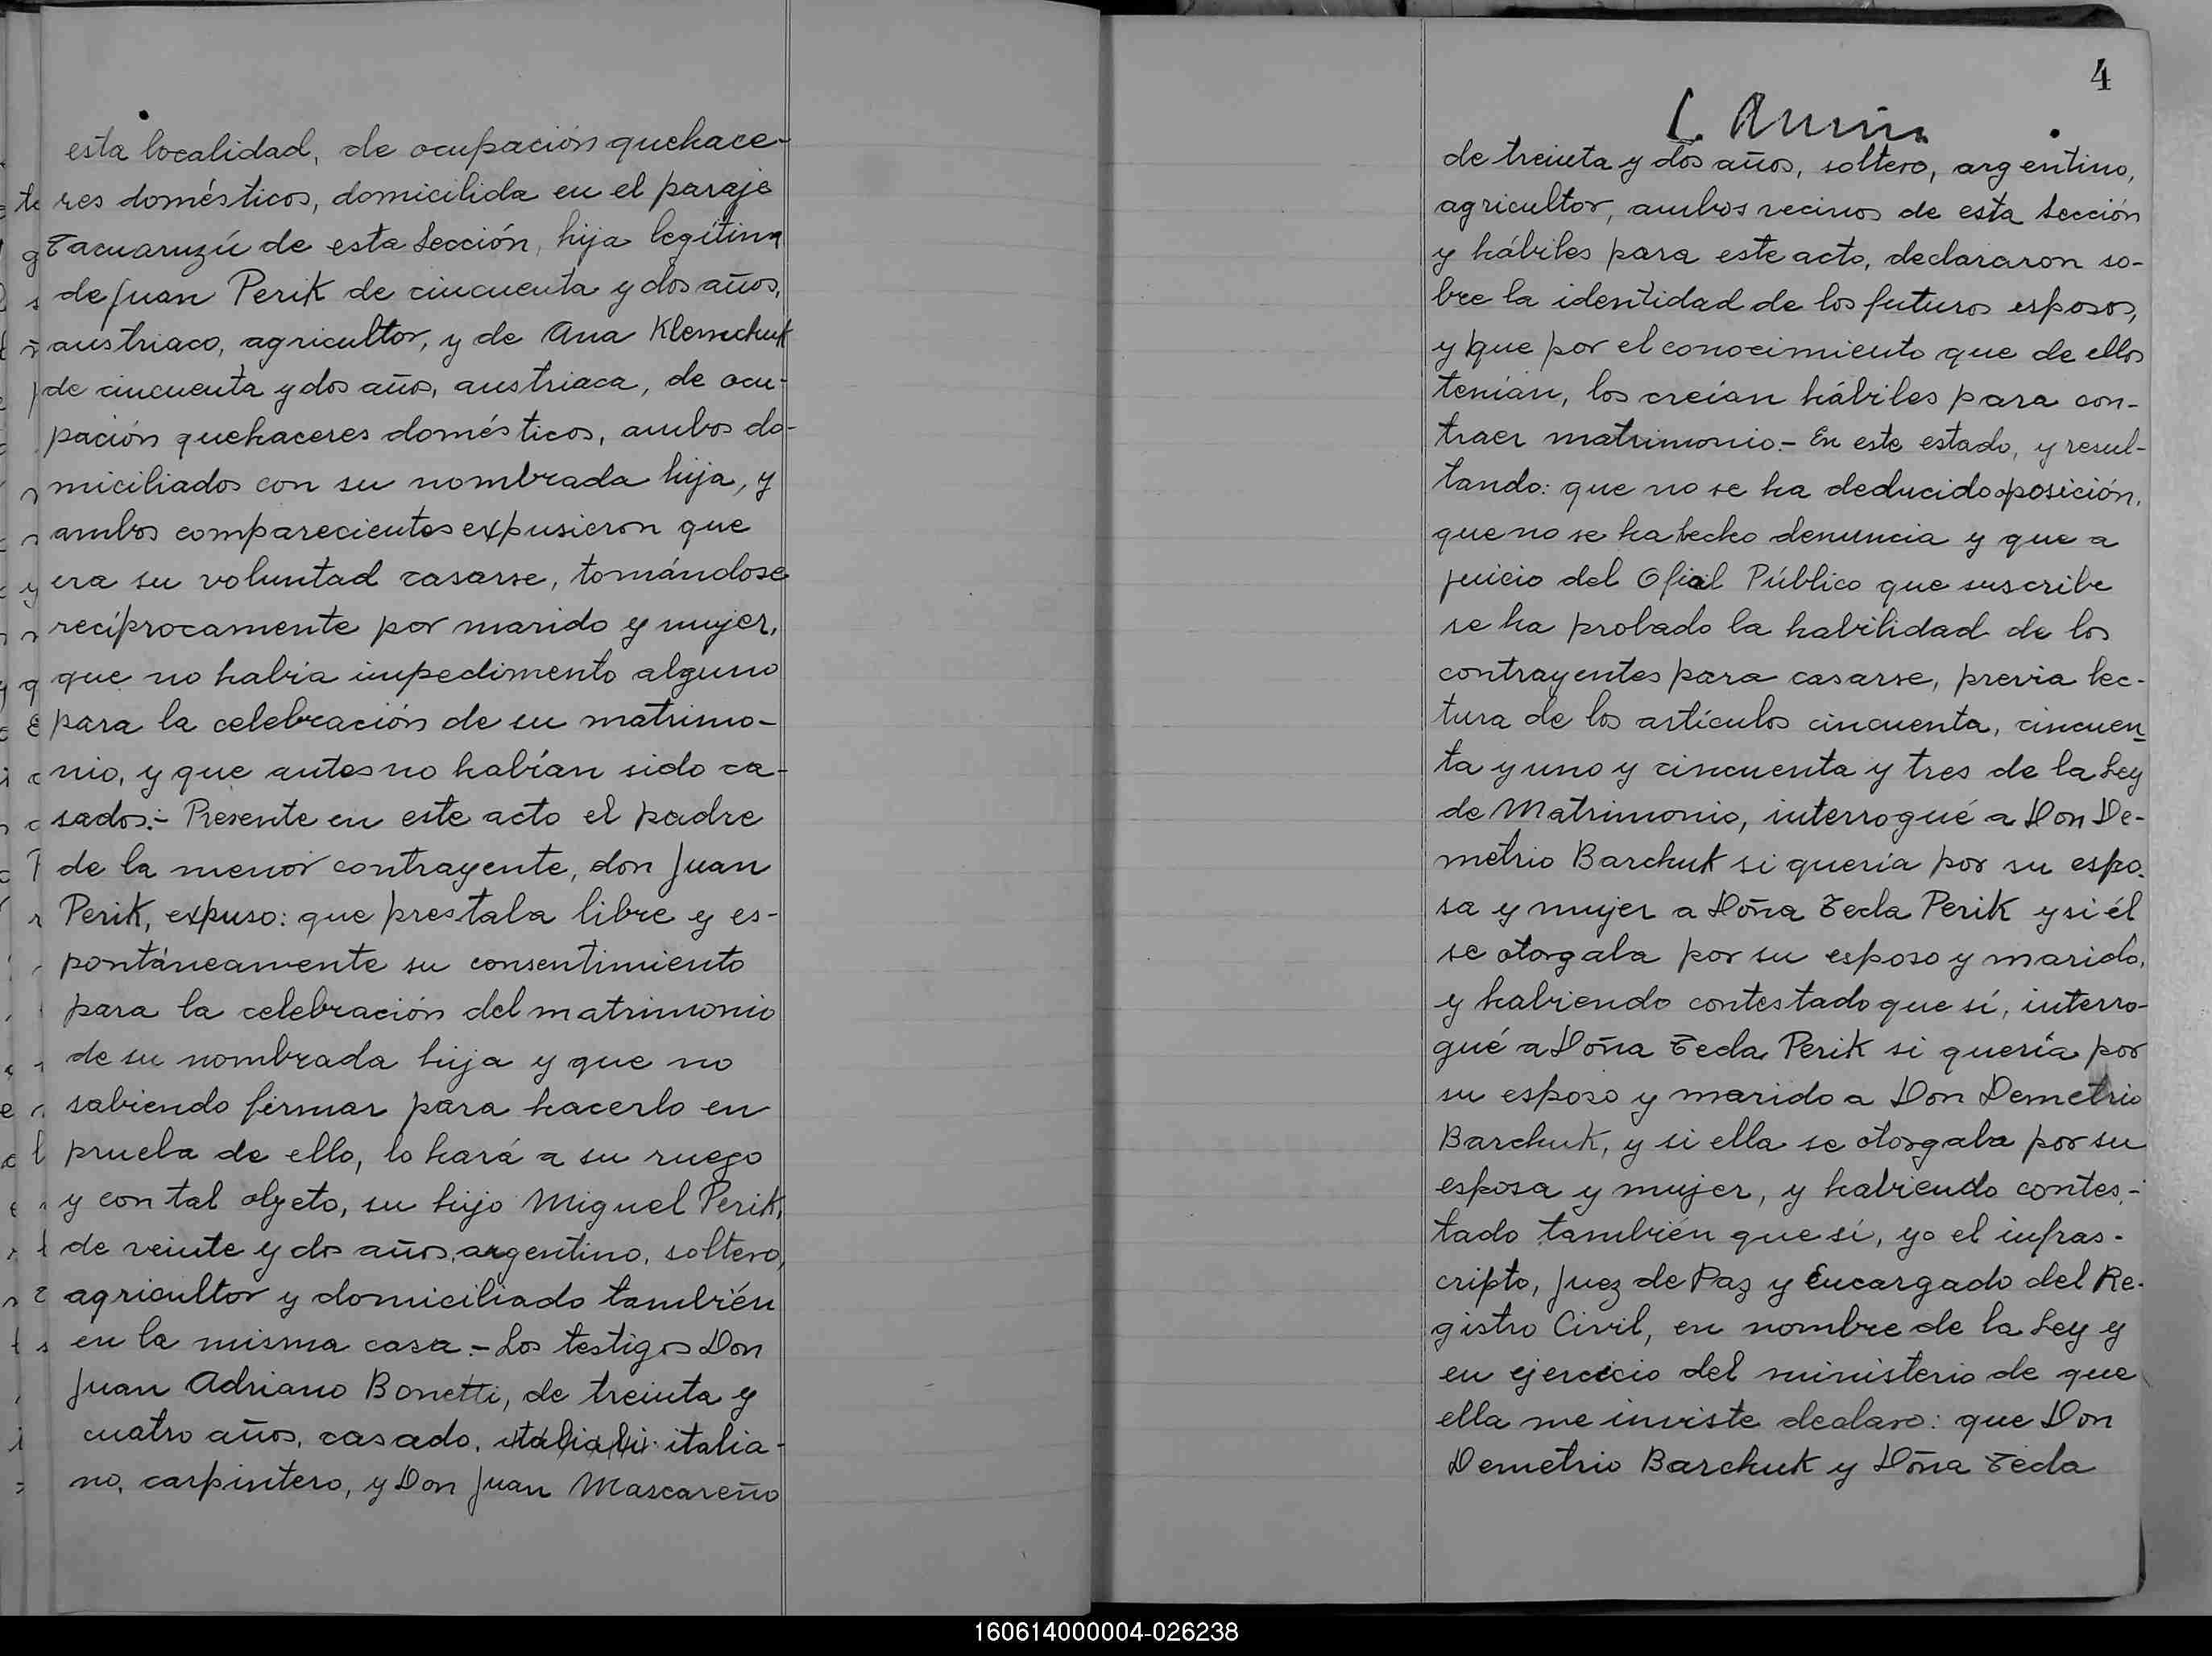 esta localidad, de ocupación quehace-
res domésticos, domicilida en el paraje
Tacuaruzú de esta Sección, hija legítima
de Juan Perik de cincuenta y dos años,
austriaco, agricultor, y de Ana Klemchuk
de cincuenta y dos años, austriaca, de ocu-
pación quehaceres domésticos, ambos do-
miciliados con su nombrada hija, y
ambos comparecientes expusieron que
era su voluntad casarse, tomándose
recíprocamente por marido y mujer,
que no habia impedimento alguno
para la celebración de su matrimo-
nio, y que antes no habían sido ca-
sados.- Presente en este acto el padre
de la menor contrayente, don Juan
Perik, expuso: que prestaba libre y es-
pontáneamente su consentimiento
para la celebración del matrimonio
de su nombrada hija y que no
sabiendo firmar para hacerlo en
prueba de ello, lo hará a su ruego
y con tal objeto, su hijo Miguel Perik,
de veinte y dos años, argentino, soltero,
agricultor y domiciliado también
en la misma casa.- Los testigos Don
Juan Adriano Bonetti, de treinta y
cuatro años, casado, italia-
no, carpintero, y Don Juan Mascareño
4
de treinta y dos años, soltero, argentino,
agricultor, ambos vecinos de esta Sección
y hábiles para este acto, declararon so-
bre la identidad de los futuros esposos,
y que por el conocimiento que de ellos
tenían, los creían hábiles para con-
traer matrimonio.- En este estado, y resul-
tando: que no se ha deducido oposición,
que no se ha hecho denuncia y que a
juicio del Ofial Público que suscribe
se ha probado la habilidad de los
contrayentes para casarse, previa lec-
tura de los artículos cincuenta, cincuen-
ta y uno y cincuenta y tres de la Ley
de Matrimonio, interrogué a Don De-
metrio Barchuk si quería por su espo-
sa y mujer a Doña Tecla Perik y si él
se otorgaba por su esposo y marido,
y habiendo contestado que sí, interro-
gué a Doña Tecla Perik si quería por
su esposo y marido a Don Demetrio
Barchuk, y si ella se otorgaba por su
esposa y mujer, y habiendo contes-
tado también que sí, yo el infras-
cripto, Juez de Paz y Encargado del Re-
gistro Civil, en nombre de la Ley y
en ejercicio del ministerio de que
ella me inviste declaro: que Don
Demetrio Barchuk y Doña Tecla
160614000004-026238